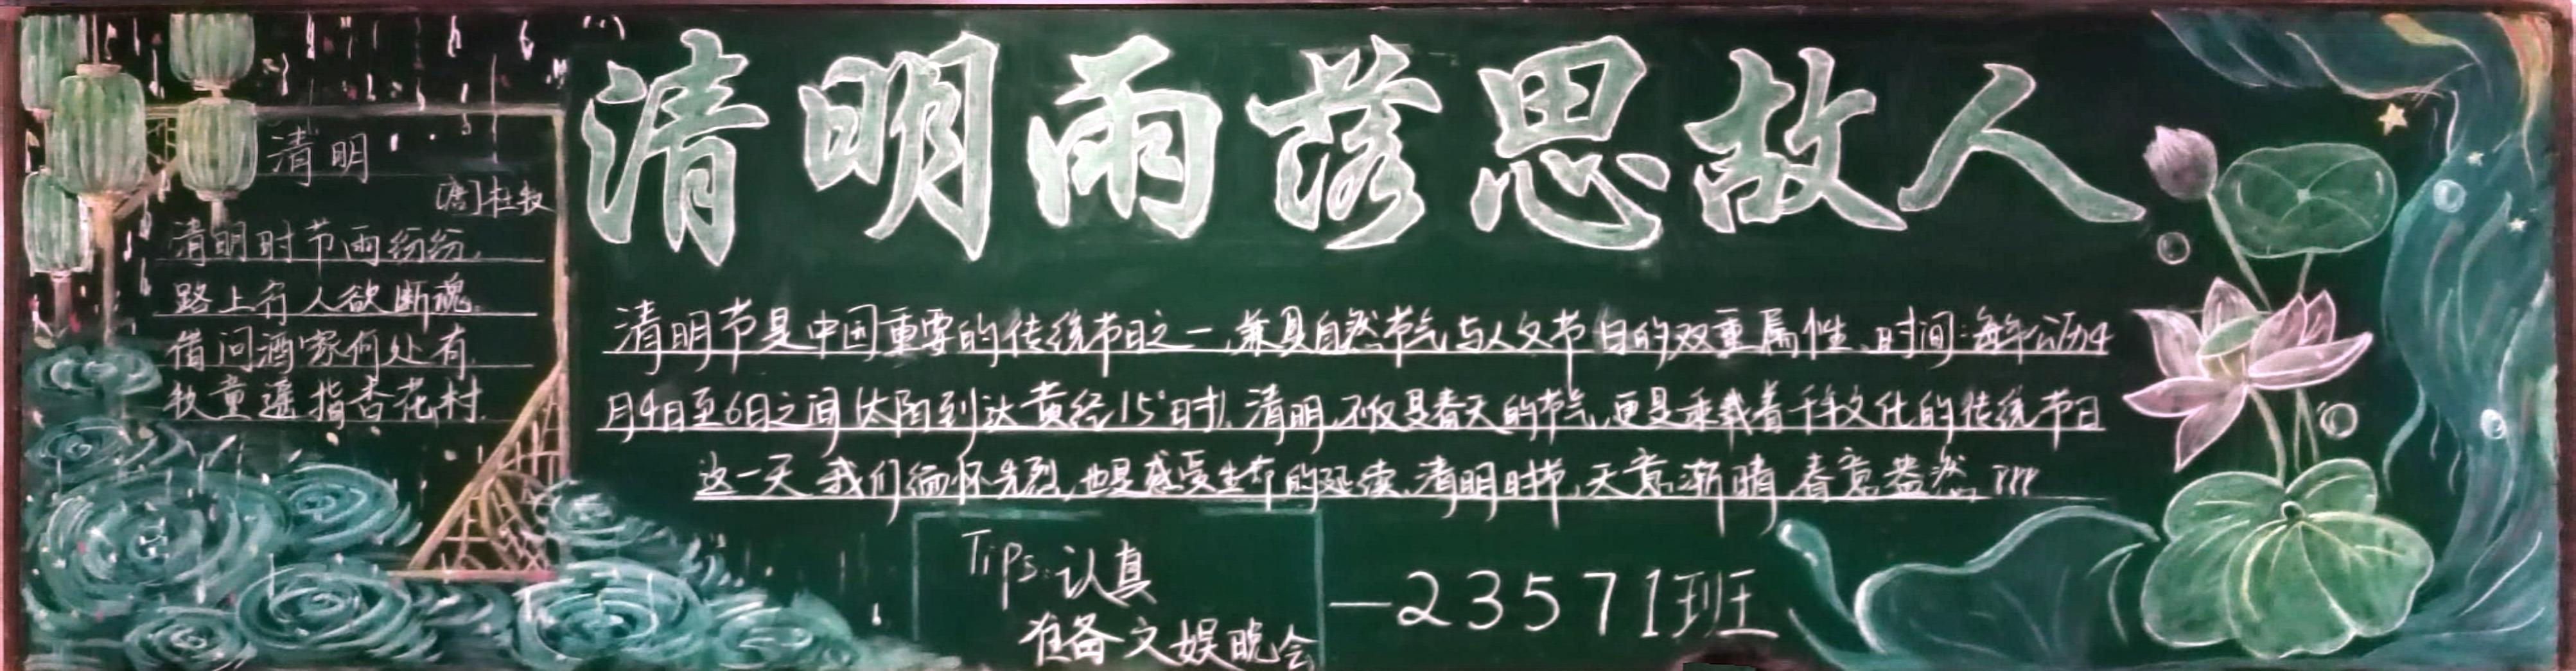 清明雨落思故人
清明
[唐]杜牧
清明时节雨纷纷,
路上行人欲断魂。
借问酒家何处有,
牧童遥指杏花村.
清明节是中国重要的传统节日之一,兼具自然节气与人文节日的双重属性、时间:每年公历4
月4日至6日之间(太阳到达黄经15°时)、清明,不仅是春天的节气,更是承载着千年文化的传统节日
这一天,我们缅怀先烈,也是感受生命的延续、清明时节,天意渐晴,春意盎然,
Tips:认真
准备文娱晚会
—23571班